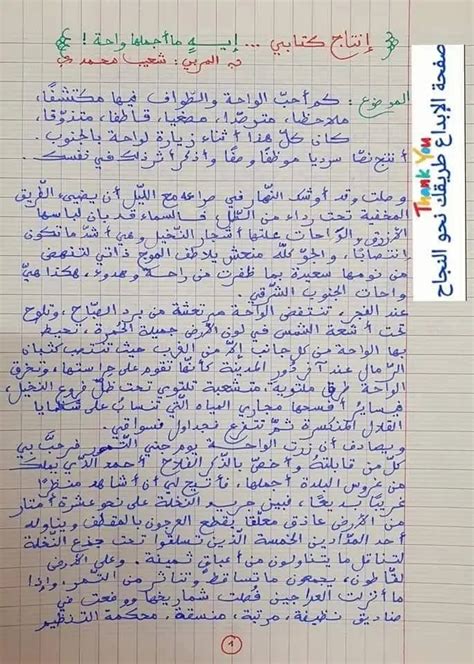 إنتاج كتابي ... إيه ما أجملها واحة !
المربي: شعيب محمدي
الموضوع: كم أحبّ الواحة والطّواف فيها مكتشفا،
ملاحظا، متوصّدا، مصغيا، قاطفا، متذوّقا،
كان كلّ هذا أثناء زيارة لواحة بالجنوب.
أنتج نصّا سرديا موظّفا وصفا واذكر أثر ذلك في نفسك.
وصلت وقد أوشك النّهار في صراعه مع اللّيل أن يضيء الطّريق
المخفية تحت رداء من اللّيل فالسماء قد بان لباسها
الأزرق والواحات علتها أشجار النّخيل وهي أشدّ ما تكون
انتصابا، والجوّ كلّه منعش يلاطف الموج ذاتي لتنهض
من نومها سعيدة بما ظفرت من راحة وهدوء، هكذا هيّ
واحات الجنوب الشّرقي.
عند الفجر، تنتفض الواحة مرتعشة من برد الصّباح، وتلوح
تحت أشعة الشّمس في لون الأرض جميلة الخضرة، تحيط
بها الواحة من كل جانب إلّا من الغرب حيث تنتصب كثبان
الرّمال عند آخر دور المدينة كأنّها تقوم على حراستها، وتخرق
الواحة طرق ملتوية متشعبة تلتوي تحت ظلّ فروع النخيل،
فمساير أفسحها مجاري المياه الّتي تنساب على
القلال المنكسرة ثمّ تتزع فجداول فسواقي.
ويصادف أن زرت الواحة يوم جني التّمور فرحّب بي
كل من قابلته وأخصّ بالذّكر الفلاح أحمد الذّي يملك
من غروس البلدة أجملها، فأتيح لي أن أشاهد منظرا
غريبا بديعا، فبين جريد النّخلة على نحو عشرة أمتار
من الأرض عاذق معلّقا يقطع العرجون بالمقطف ويناوله
أحد المدّادين الخمسة الذين تسلّقوا تحت جذع النّخلة
لتناقل ما يتناولون من أعباق ثمينة. وعلى الأرض
لقّاطون، يجمعون ما تساقط وتناثر من التّمر، وإذا
ما أنزلت العراجين فُصلت شماريخها ووضعت في
صناديق نظيفة، مرتبة، منسقة، محكمة التنظيم
1
Thank You
صفحة الإبداع طريقك نحو النجاح